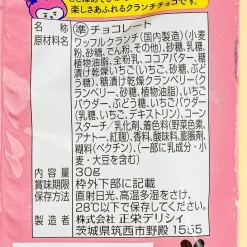 楽しさあふれるクランチチョコです。
名称 ㊤チョコレート
原材料名 ワッフルクランチ(国内製造)(小麦
粉、砂糖、でん粉、その他)、砂糖、乳糖、
植物油脂、全粉乳、ココアパウダー、糖
漬け乾燥いちご(いちご、砂糖、ぶど
う糖)、糖漬け乾燥クランベリー(クラ
ンベリー、砂糖、植物油脂)、いちごパ
ウダー、ぶどう糖、いちごパウダー(乳
糖、いちご、デキストリン)、コーン
スターチ／乳化剤、着色料(野菜色素、
アナトー、紅麹)、香料、酸味料、膨脹剤、
糊料(ペクチン)、(一部に乳成分・小
麦・大豆を含む)
内容量 30g
賞味期限 枠外下部に記載
保存方法 直射日光、高温多湿をさけ、
28℃以下で保存してください。
製造者 株式会社 正栄デリシィ
茨城県筑西市野殿 1565